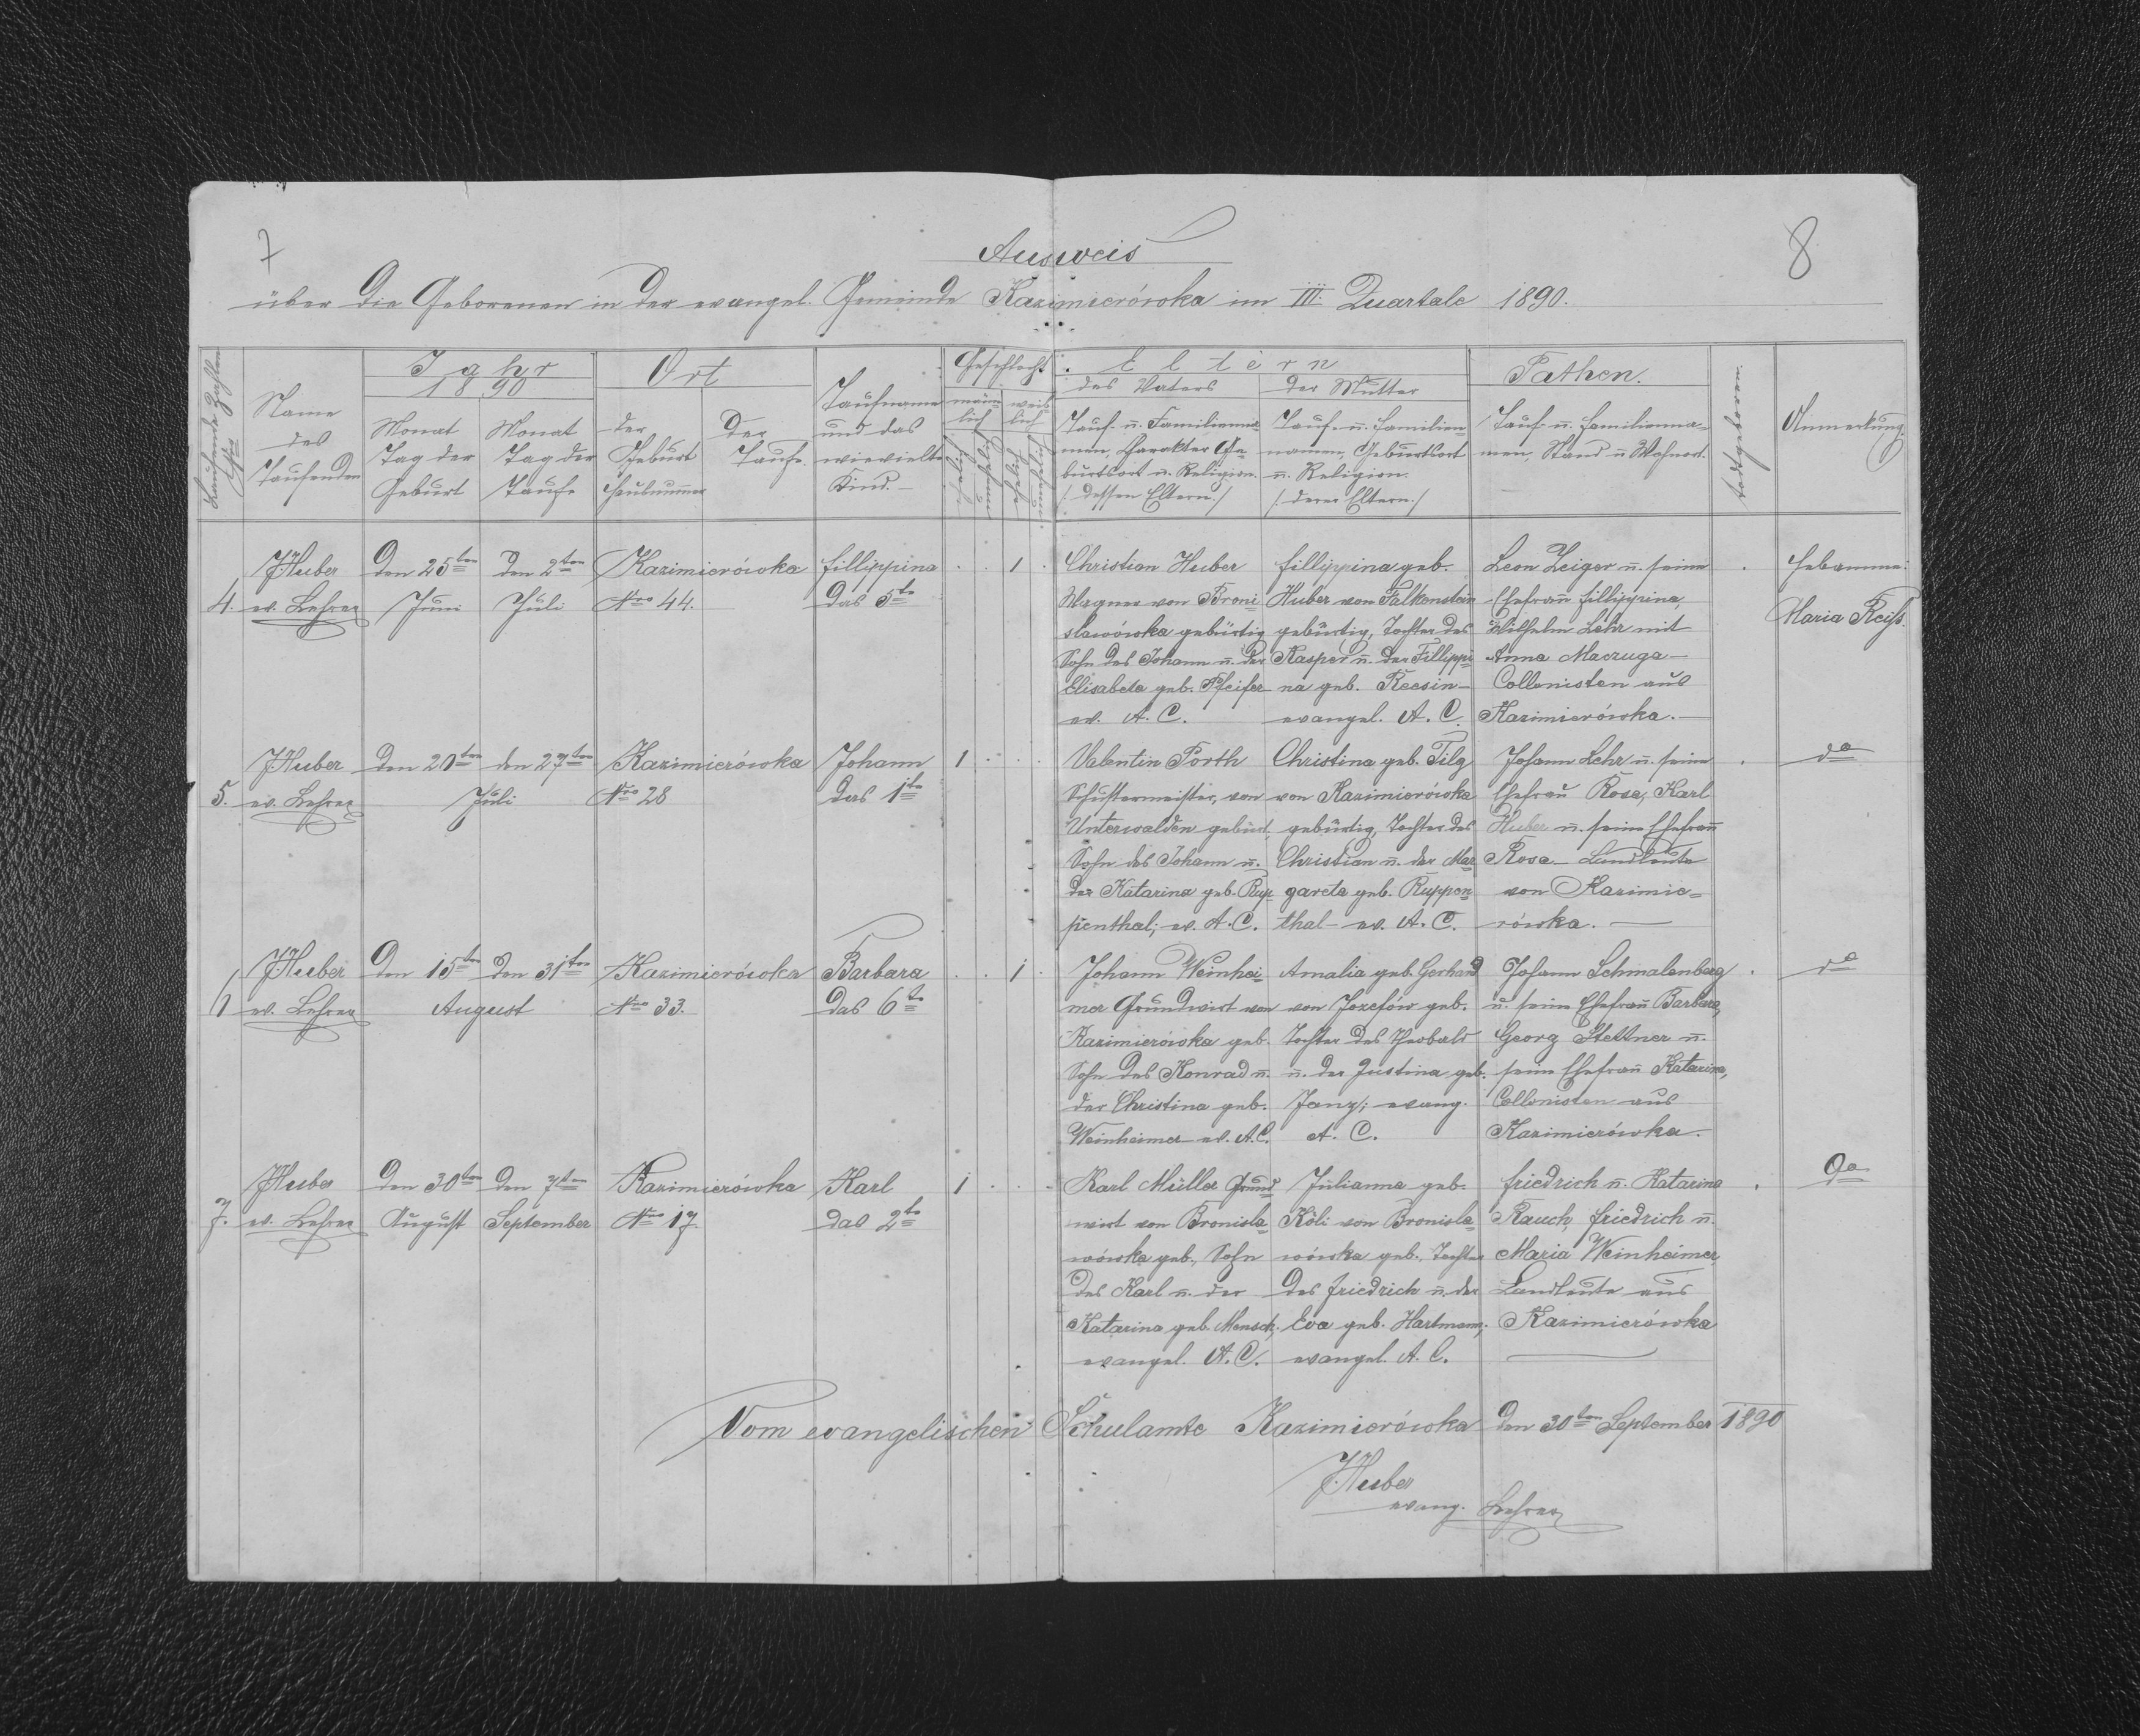 7
8
Ausweis
über die Geborenen in der evangel. Gemeinde Kazimierówka im III. Quartale 1890.
Laufende Zahlen
Name des Taufenden
Jahr 1890
Monat Tag der Geburt
Monat Tag der Taufe
Ort
der Geburt Hausnummer
der Taufe
Taufname und das wievielte Kind.
Geschlecht
männlich
weiblich
Eltern
des Vaters
Tauf- u. Familienna-
men, Charakter Ge-
burtsort u. Religion.
/: dessen Eltern :/
der Mutter
Tauf- u. Familien-
namen, Geburtsort
u. Religion.
/: deren Eltern :/
Pathen.
Tauf- u. Familienna-
men, Stand u. Wohnort.
todtgeboren
Anmerkung
4.
JHuber
ev. Lehrer
Den 25ten
Juni
den 2ten
Juli
Kazimierówka
Nro 44.
Fillippina
das 5te
1
Christian Huber
Wagner von Broni-
sławówka gebürtig
Sohn des Johann u. der
Elisabeta geb. Pfeifer
ev. A. C.
Fillippina geb.
Huber von Falkenstein
gebürtig, Tochter des
Kasper u. der Fillippi-
na geb. Reesin-
evangel. A. C.
Leon Zeiger u. seine
Ehefrau Fillippina,
Wilhelm Lehr mit
Anna Maczuga-
Collonisten aus
Kazimierówka.
Hebamme:
Maria Reiss.
5.
JHuber
ev. Lehrer
Den 20ten
den 27ten
Juli
Kazimierówka
Nro 28
Johann
das 1te
1
Valentin Porth
Schustermeister, von
Unterwalden gebürt.
Sohn des Johann u.
der Katarina geb. Rup-
penthal; ev. A. C.
Christina geb. Filg
von Kazimierówka
gebürtig, Tochter des
Christian u. der Mar-
gareta geb. Ruppen-
thal- ev. A. C.
Johann Lehr u. seine
Ehefrau Rosa, Karl
Huber u. seine Ehefrau
Rosa - Landleute
von Kazimie-
rówka.
do
6
JHuber
ev. Lehrer
Den 15ten
den 31ten
August
Kazimierówka
Nro 33.
Barbara
das 6te
1
Johann Weinhei-
mer Grundwirt von
Kazimierówka geb.
Sohn des Konrad u.
der Christina geb.
Weinheimer- ev. A. C.
Amalia geb. Gerhard
von Jozefów geb.
Tochter des Theobald
u. der Justina geb.
Janz; evang.
A. C.
Johann Schmalenberg
u. seine Ehefrau Barbara,
Georg Stettner u.
seine Ehefrau Katarina,
Collonisten aus
Kazimierówka.
do
7.
JHuber
ev. Lehrer
Den 30ten
August
den 7ten
September
Kazimierówka
Nro 17.
Karl
das 2te
1
Karl Müller Grund-
wirt von Bronisła-
wówka geb., Sohn
des Karl u. der
Katarina geb. Mensch;
evangel. A. C.
Julianna geb.
Köli von Bronisła-
wówka geb., Tochter
des Friedrich u. der
Eva geb. Hartmann;
evangel. A. C.
Friedrich u. Katarina
Rauch, Friedrich u.
Maria Weinheimer,
Landleute aus
Kazimierówka
do
Vom evangelischen Schulamte Kazimierówka den 30ten September 1890
JHuber
evang. Lehrer